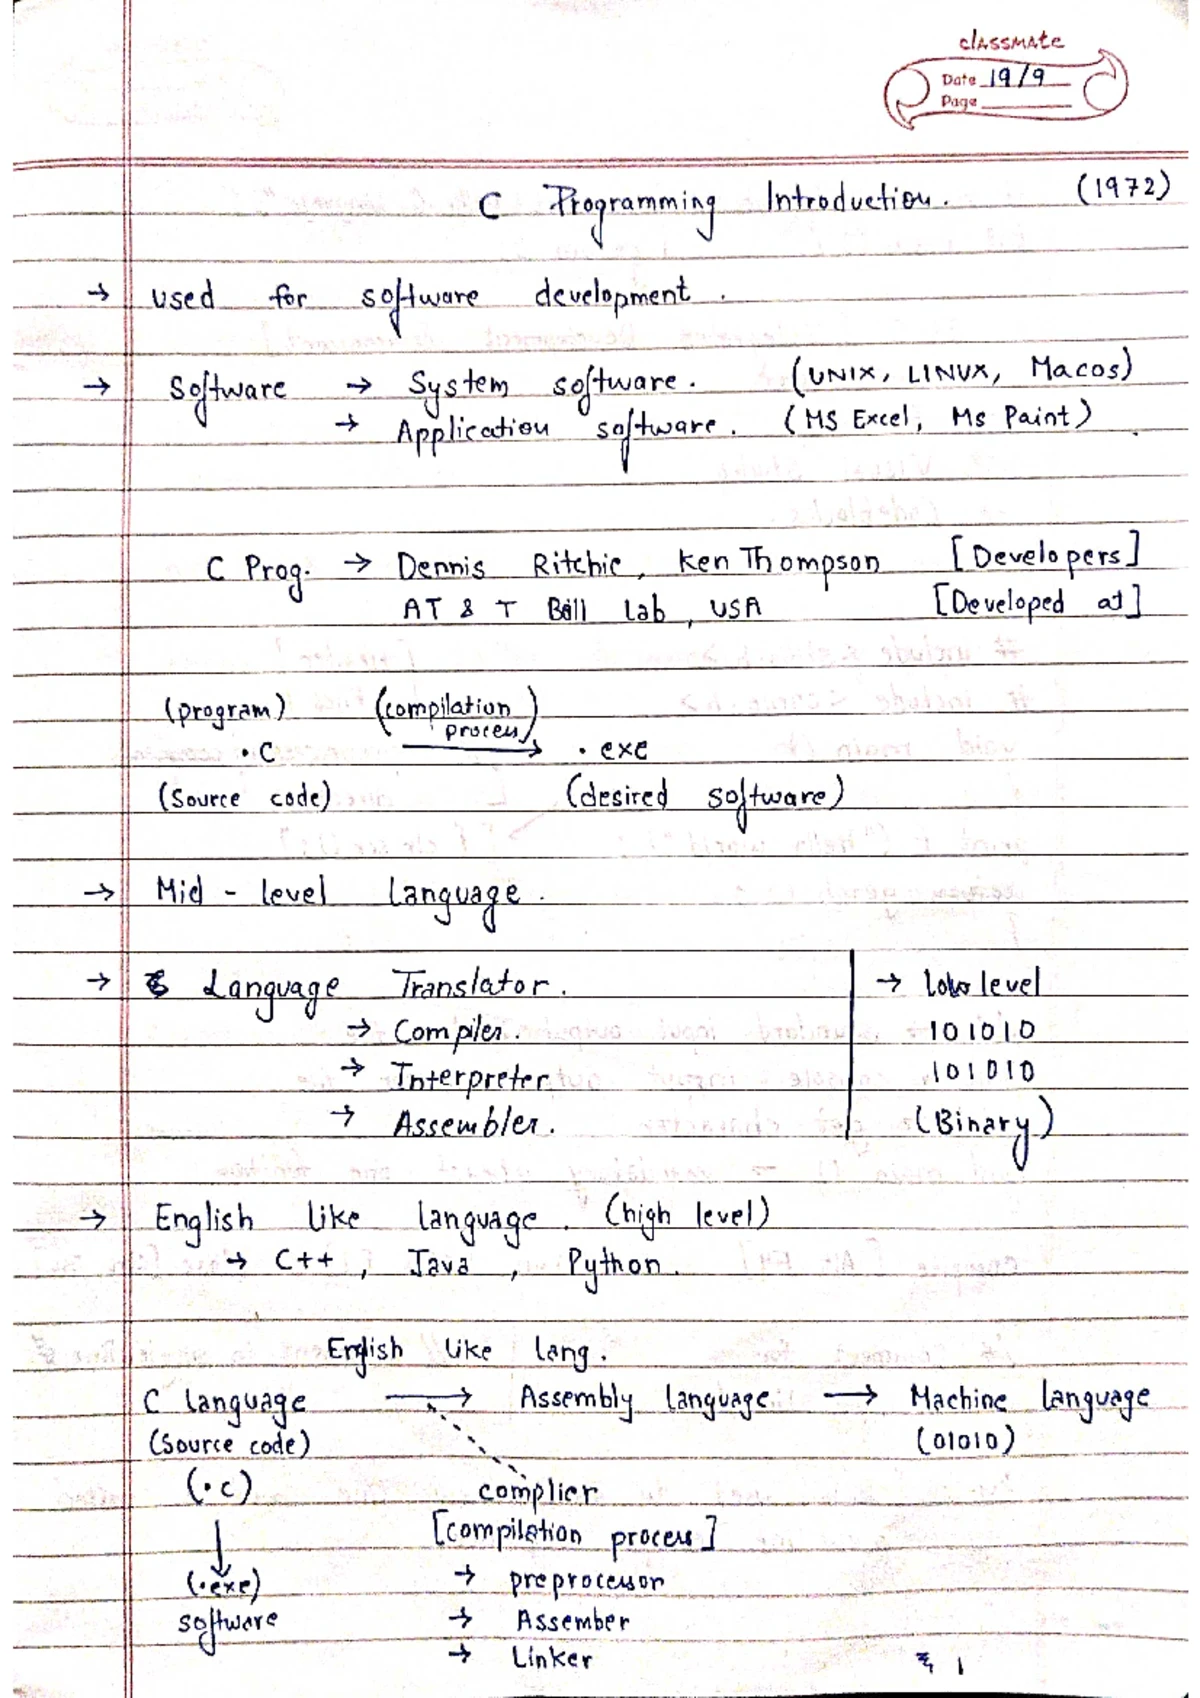 classmate
Date 19/9
Page
C Programming Introduction. (1972)
→ used for software development.
→ Software → System software. (UNIX, LINUX, Macos)
→ Application software. (MS Excel, Ms Paint)
C Prog. → Dennis Ritchie, Ken Thompson [Developers]
AT & T Bell Lab, USA [Developed at]
(program) (compilation process)
.C → .exe
(Source code) (desired software)
→ Mid - level language.
→ Language Translator. → low level
→ Compiler. 101010
→ Interpreter 101010
→ Assembler. (Binary)
→ English like language. (high level)
→ C++, Java, Python.
English like lang.
C language → Assembly language → Machine language
(Source code) (01010)
(.c) complier
[compilation process]
(.exe) → preprocessor
software → Assember
→ Linker 1